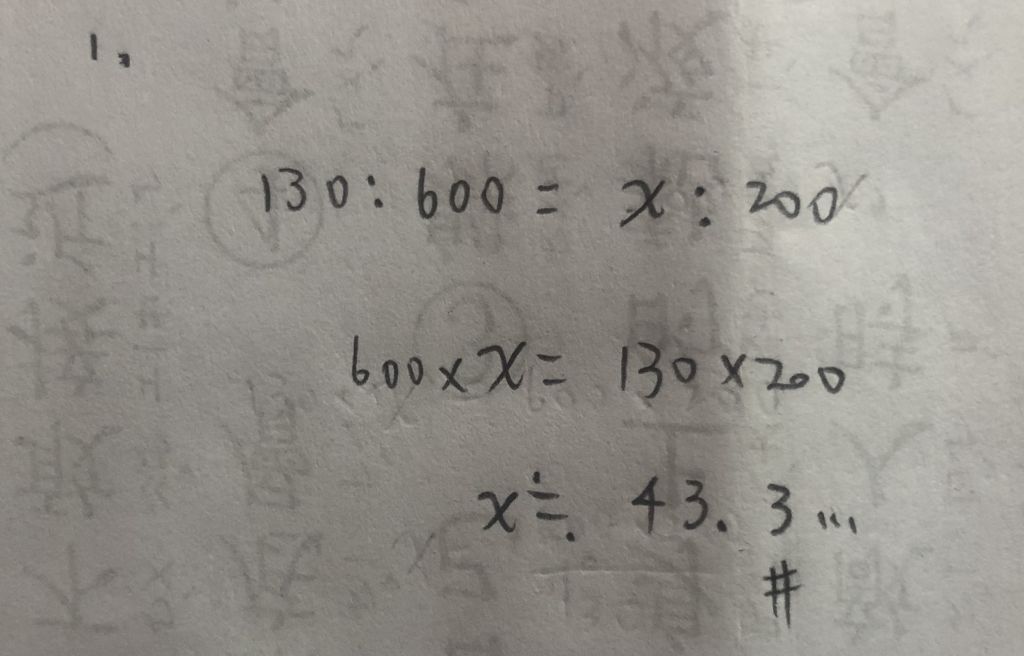 1、
130 : 600 = x : 200
600 × x = 130 × 200
x ≒ 43.3...
#